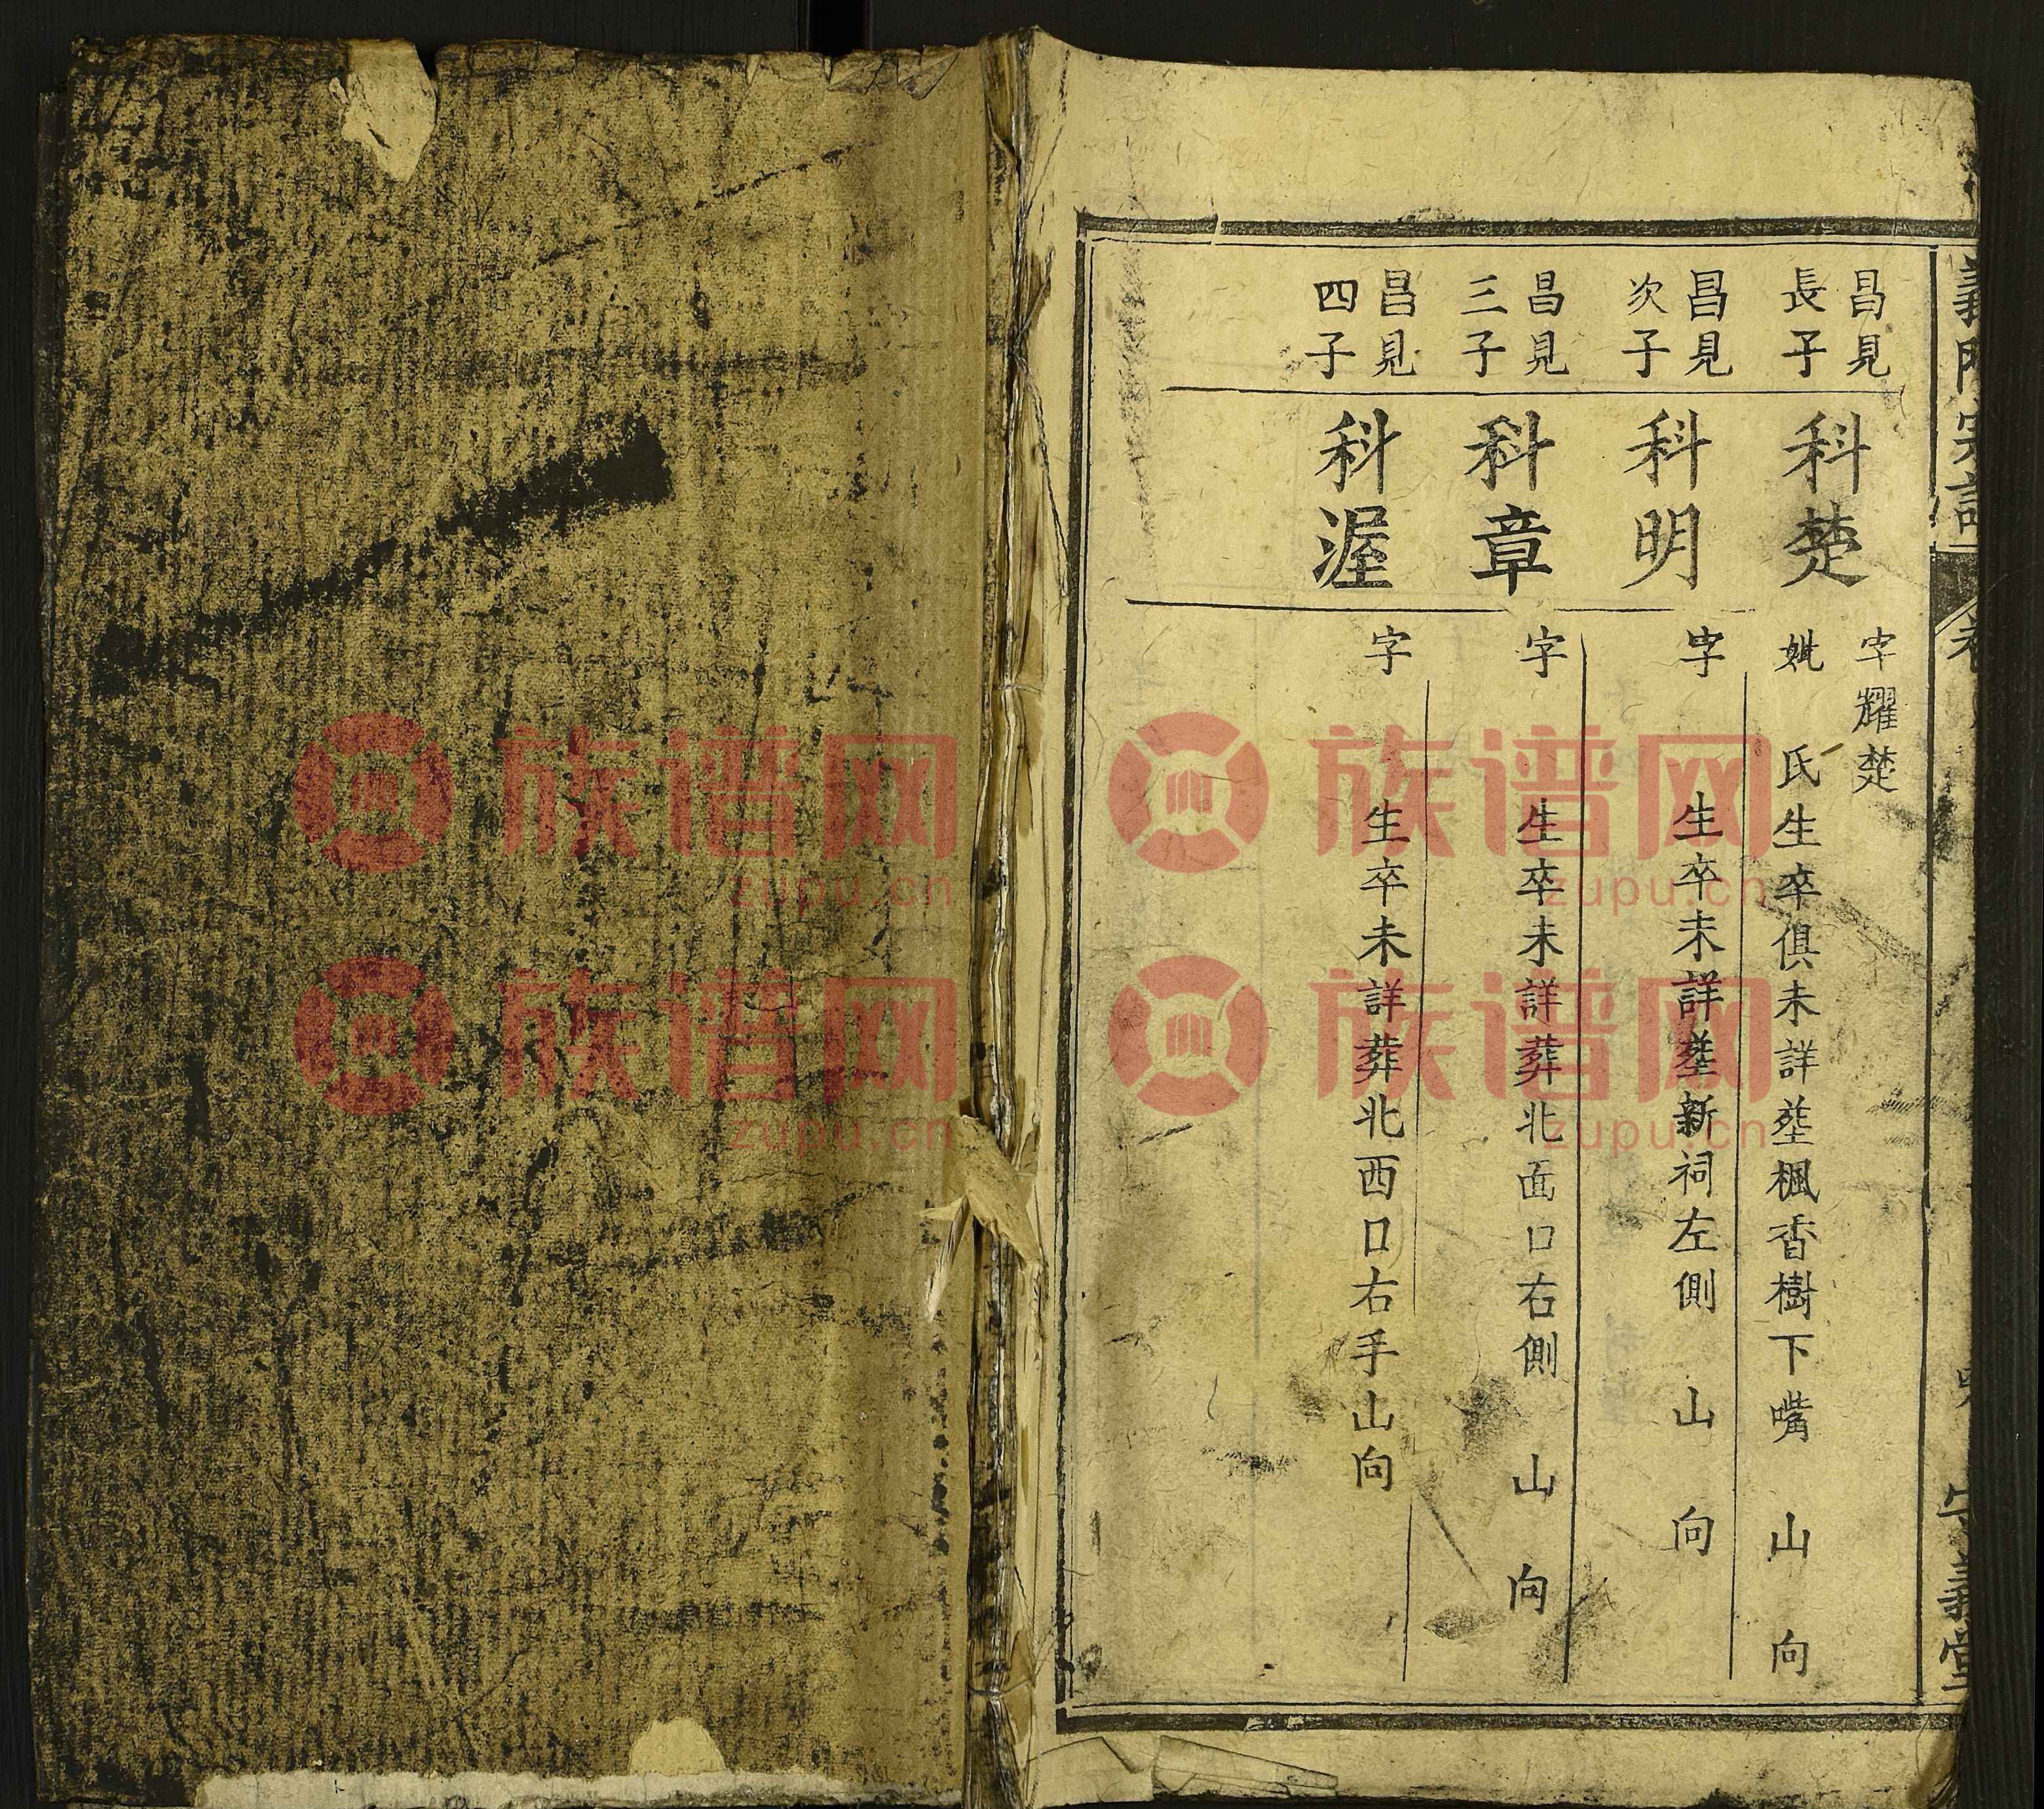 昌見
長子
科楚
字耀楚
妣　氏生卒俱未詳塟楓香樹下嘴　山　向
昌見
次子
科明
字　生卒未詳塟新祠左側　山　向
昌見
三子
科章
字　生卒未詳葬北面口右側　山　向
昌見
四子
科渥
字　生卒未詳葬北西口右手山向
族谱网
zupu.cn
族谱网
zupu.cn
族谱网
zupu.cn
族谱网
zupu.cn